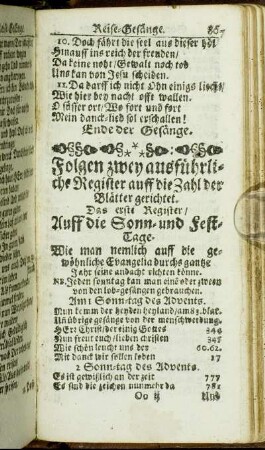 Reise-Gesänge.
10. Doch fährt die seel aus dieser höl
Hinauff ins reich der freuden/
Da keine noht/Gewalt noch tod
Uns kan von Jesu scheiden.
11. Da darff ich nicht Ohn einigs licht/
Wie hier bey nacht offt wallen.
O süsser ort/Wo fort und fort
Mein danck-lied sol erschallen!
Ende der Gesänge.
Folgen zwey ausführli-
che Register auff die Zahl der
Blätter gerichtet.
Das erste Register/
Auff die Sonn-und Fest-
Tage.
Wie man nemlich auff die ge-
wöhnliche Evangelia durchs gantze
Jahr seine andacht richten könne.
NB. Jeden sonntag kan man ein oder zween
von den lob-gesängen gebrauchen.
Am 1 Sonn-tag des Advents.
Nun komm der heyden heyland/am 83. blat.
Uñ übrige gesänge von der menschwerdung.
HErr Christ/der einig Gottes
Nun freut euch/lieben christen
Wie schön leucht uns der 60.62.
Mit danck wir sollen loben 17
2 Sonn-tag des Advents.
Es ist gewißlich an der zeit 777
Es sind die zeichen nunmehr da 781
Oo ij Und